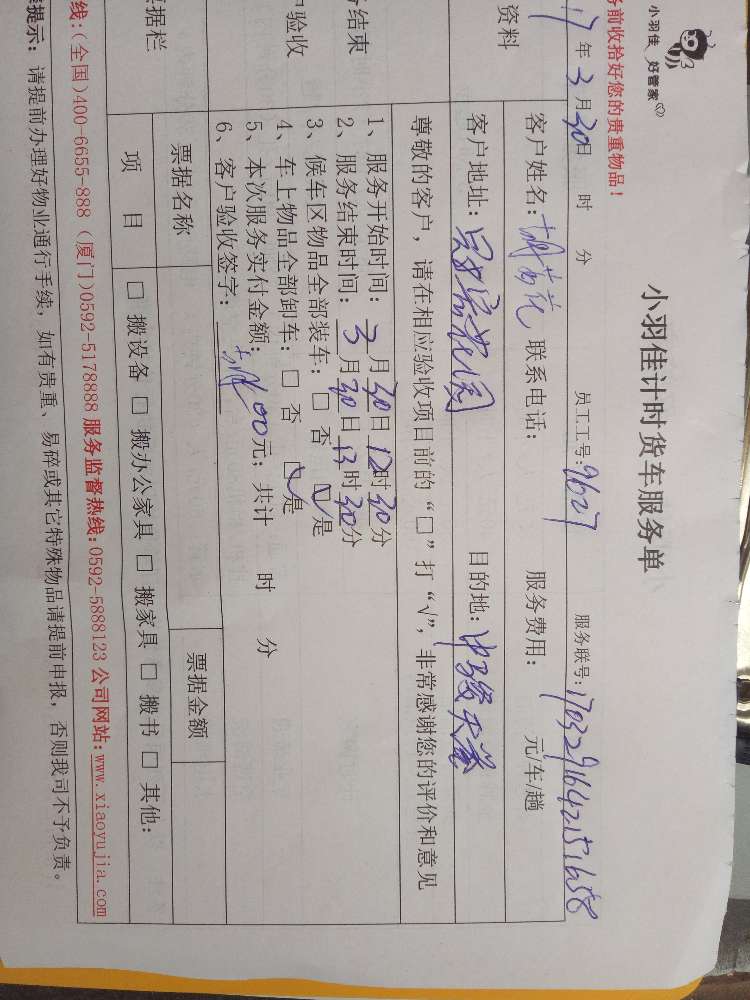 小羽佳 好管家
务前收拾好您的贵重物品！
小羽佳计时货车服务单
17年3月30日 时 分 员工工号：9627 服务联号：1703291642151658
资料
客户姓名： 联系电话： 服务费用： 元/车/趟
客户地址： 花园 目的地：
尊敬的客户，请在相应验收项目前的“□”打“√”，非常感谢您的评价和意见
务结束
户验收
1、服务开始时间：3月30日12时30分
2、服务结束时间：3月30日13时30分
3、候车区物品全部装车：□否 □是
4、车上物品全部卸车：□否 □是
5、本次服务实付金额： 元；共计 时 分
6、客户验收签字：
票据栏
票据名称 票据金额
项目 □搬设备 □搬办公家具 □搬家具 □搬书 □其他：
线：(全国)400-6655-888 (厦门)0592-5178888 服务监督热线：0592-5888123 公司网站：www.xiaoyujia.com
提示：请提前办理好物业通行手续，如有贵重、易碎或其它特殊物品请提前申报，否则我司不予负责。